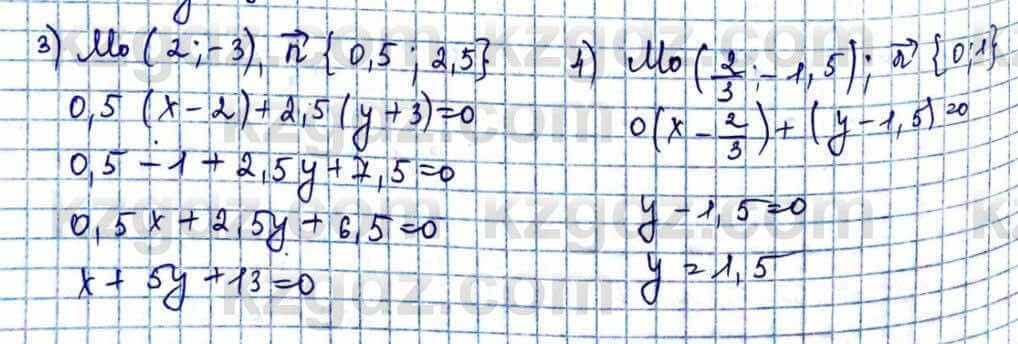 3) M₀ (2; -3), n⃗ {0,5; 2,5}
0,5 (x - 2) + 2,5 (y + 3) = 0
0,5 - 1 + 2,5y + 7,5 = 0
0,5x + 2,5y + 6,5 = 0
x + 5y + 13 = 0
4) M₀ (2/3; -1,5); n⃗ {0; 1}
0(x - 2/3) + (y - 1,5) = 0
y - 1,5 = 0
y = 1,5
kzgdz.com